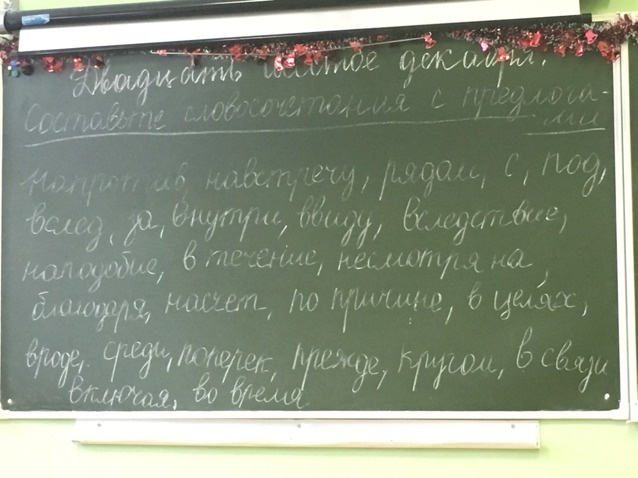 Двадцать шестое декабря.
Составьте словосочетания с предлога-
ми
Напротив, навстречу, рядом, с, под,
вслед, за, внутри, ввиду, вследствие,
наподобие, в течение, несмотря на,
благодаря, насчет, по причине, в целях,
вроде, среди, поперек, прежде, кругом, в связи
включая, во время